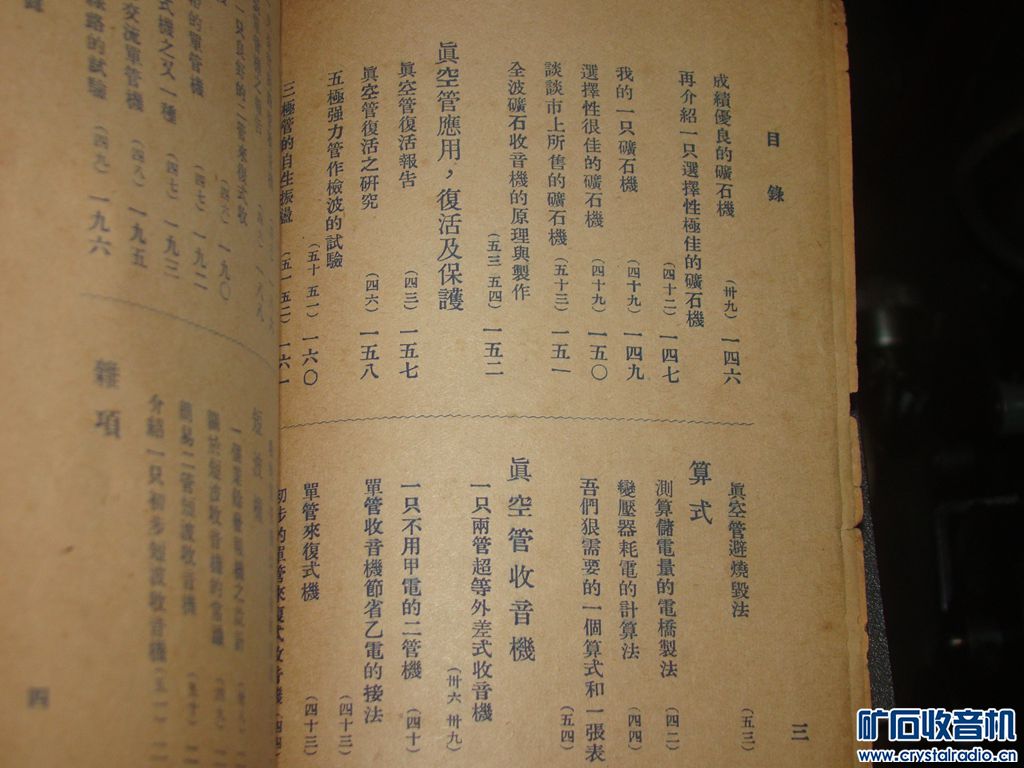 目錄
成績優良的礦石機 (卅九) 一四六
再介紹一只選擇性極佳的礦石機 (四十二) 一四七
我的一只礦石機 (四十九) 一四九
選擇性很佳的礦石機 (四十九) 一五〇
談談市上所售的礦石機 (五十三) 一五一
全波礦石收音機的原理與製作 (五三 五四) 一五二
眞空管應用,復活及保護
眞空管復活報告 (四三) 一五七
眞空管復活之研究 (四六) 一五八
五極强力管作檢波的試驗 (五十 五一) 一六〇
三極管的自生振盪 (五一 五二) 一六一
三
眞空管避燒毀法 (五三)
算式
測算儲電量的電橋製法 (四二)
變壓器耗電的計算法 (四四)
吾們狠需要的一個算式和一張表 (五四)
眞空管收音機
一只兩管超等外差式收音機 (卅六 卅九)
一只不用甲電的二管機 (四十)
單管收音機節省乙電的接法 (四十三)
單管來復式機 (四十三)
初步的單管來復式收音機 (四四)
一只良好的二管來復式收 (四六) 一九〇
的單管機 (四七) 一九二
式機之又一種 (四七) 一九三
交流單管機 (四八) 一九五
線路的試驗 (四九) 一九六
短波機
關於短波收音機的常識
簡易二管短波收音機 (五十)
介紹一只初步短波收音機 (五一)
雜項
四
矿石收音机
www.crystalradio.cn